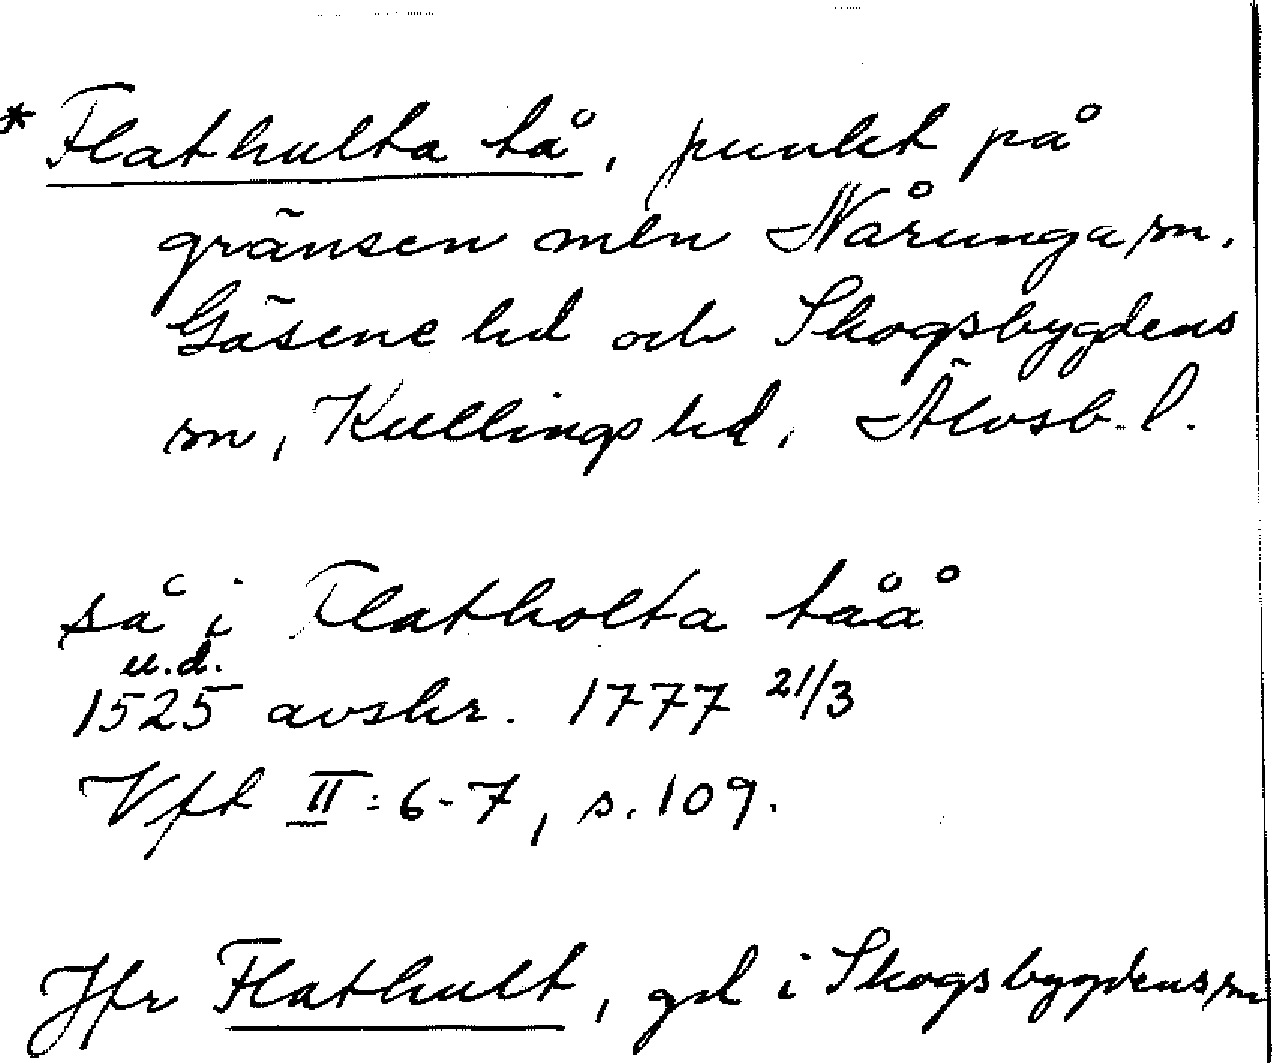 * Flathulta tå, punkt på
gränsen mln Nårunga sn,
Gäsene hd och Skogsbygdens
sn, Kullings hd, Älvsb. l.
så i Flatholta tåå
u.d.
1525 avskr. 1777 21/3
Vft II:6-7, s. 109.
Jfr Flathult, gd i Skogsbygdens sn